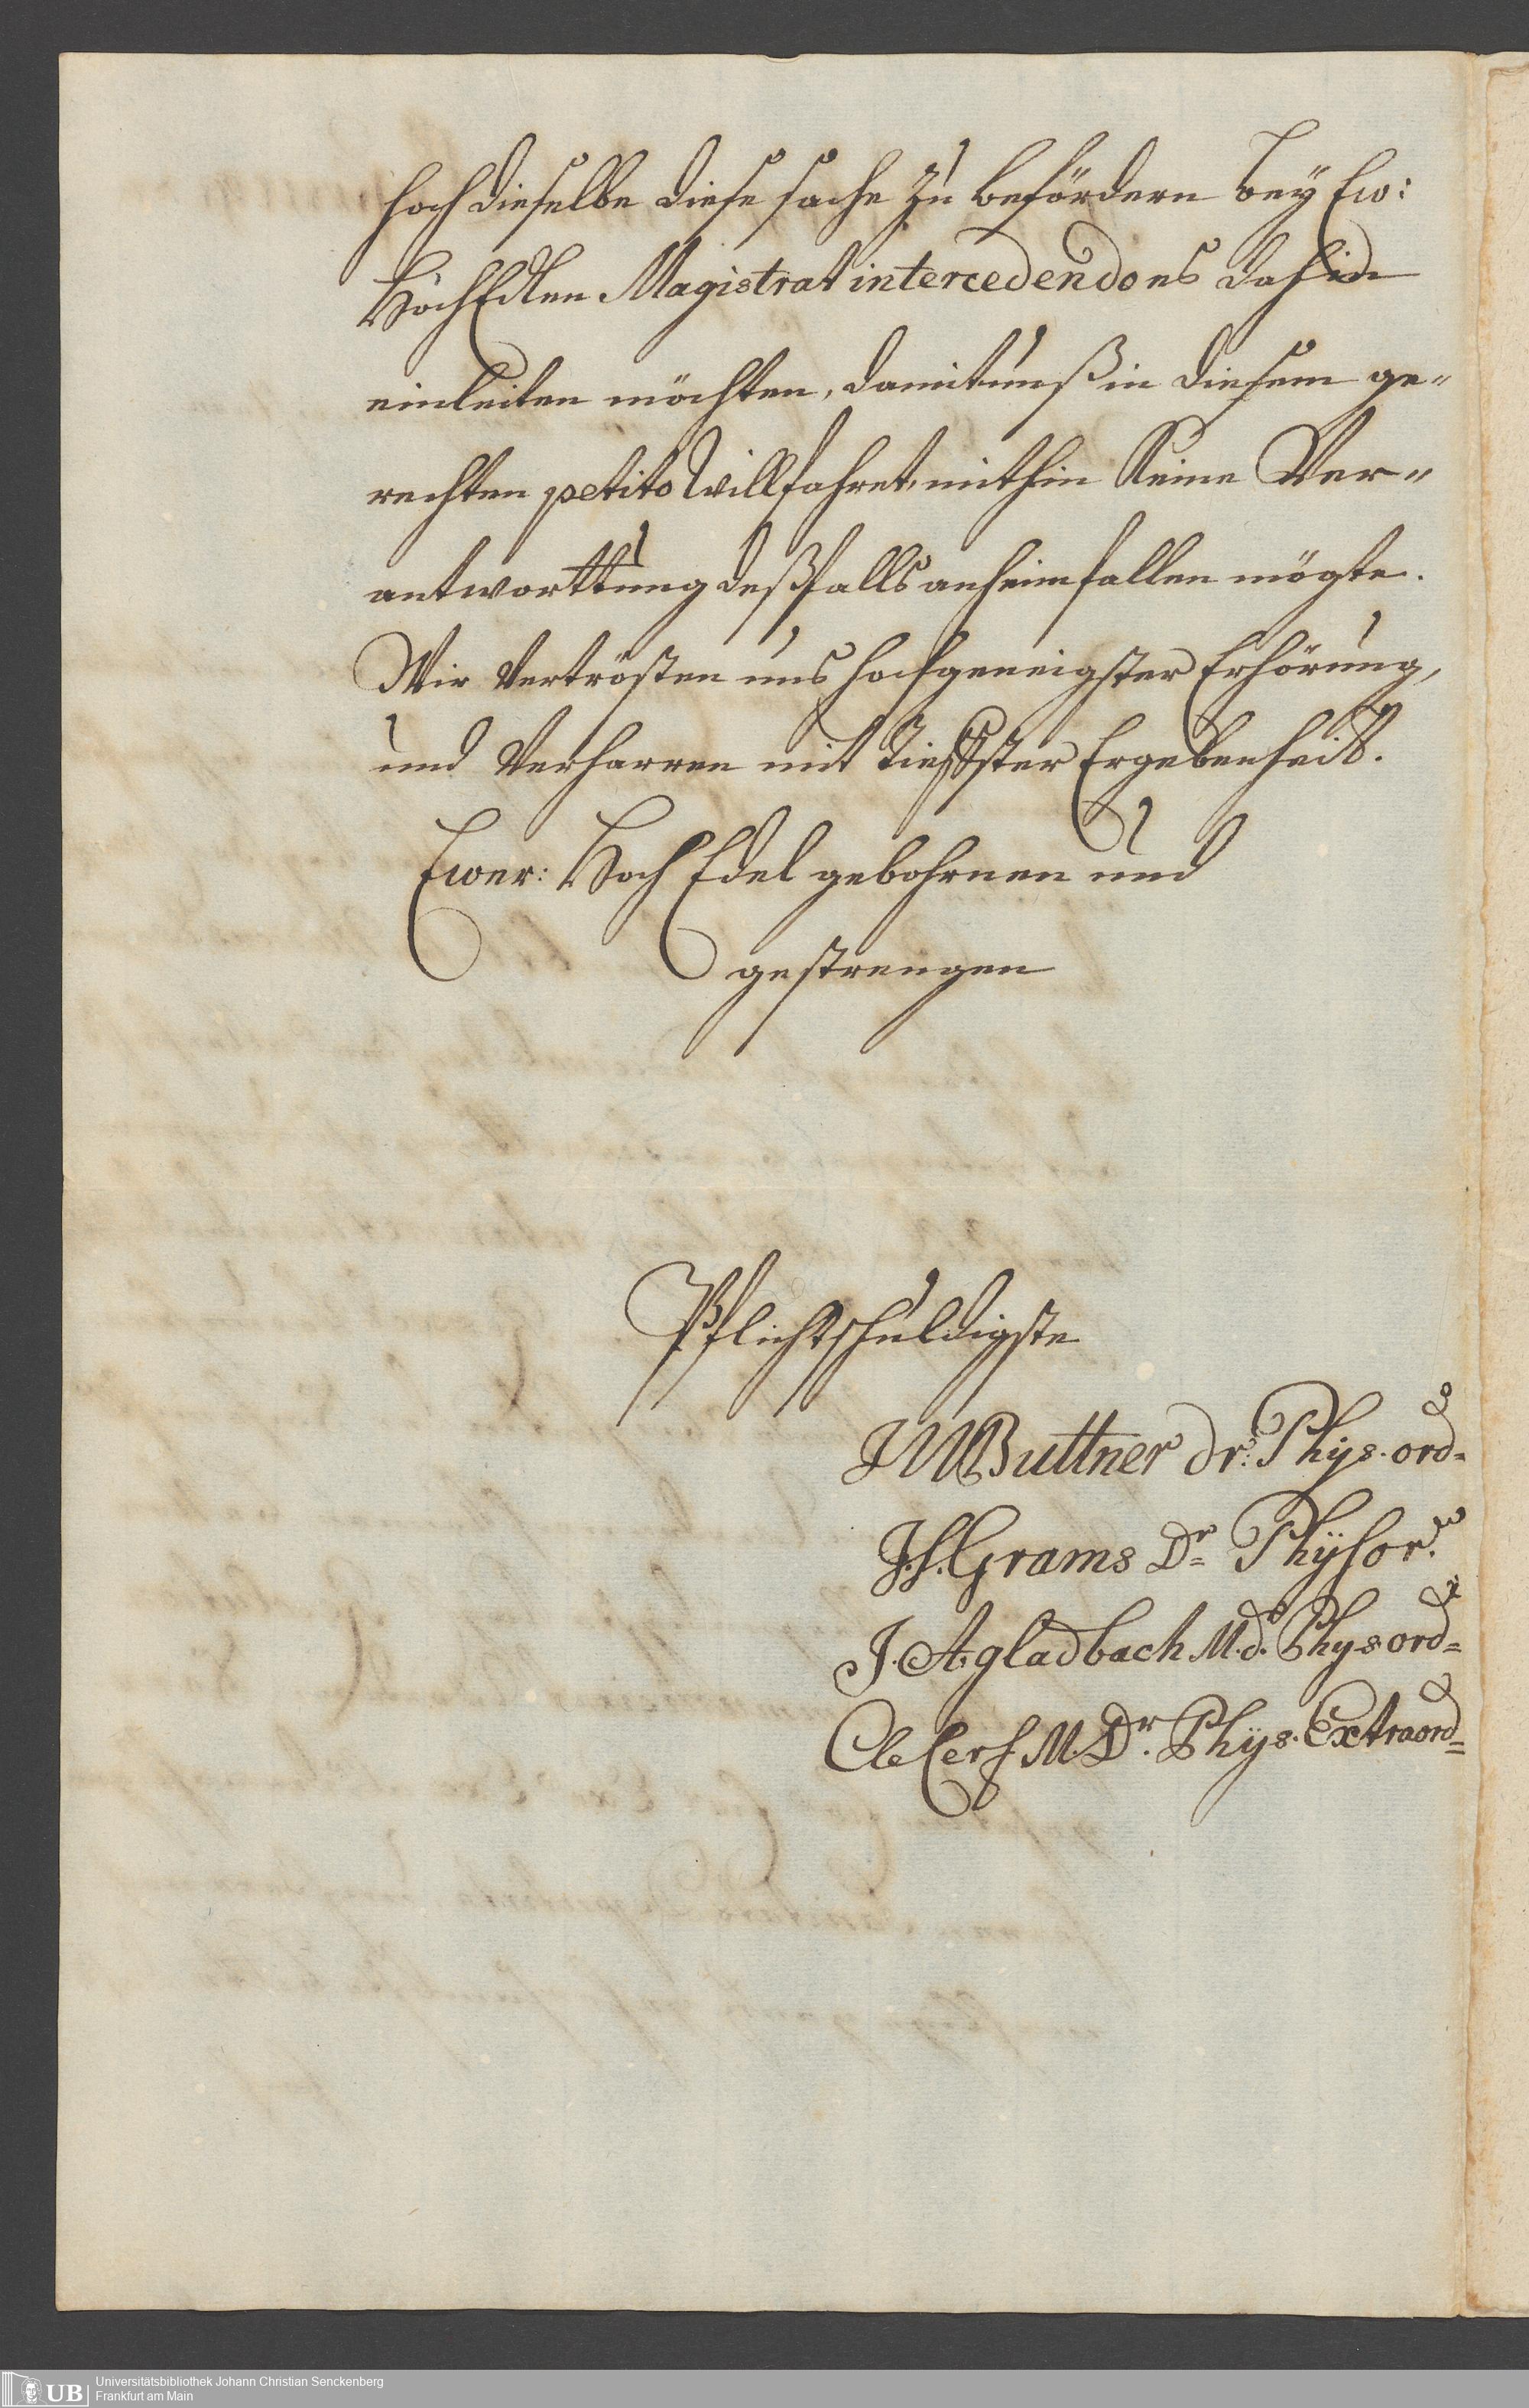 hochdieselbe diese sache zu befördern bey Ew:
HochEdlen Magistrat intercedendo es dahin
einleiten möchten, damit unß in diesem ge-
rechten petito Willfahret, mithin Keine Ver-
antworttung deßfalls anheimfallen mögte.
Wir Vertrösten uns hochgeneigster Erhörung,
und Verharren mit tieffster Ergebenheit.
Ewer: Hoch Edel gebohrnen und
gestrengen
Pflichtschuldigste
J M Buttner Dr: Phys. ord=
J. H. Grams Dr= Phys or.
J. A gladbach M. d. Phys ord=
C le Cerf M. Dr. Phys. Extraord=
UB
Universitätsbibliothek Johann Christian Senckenberg
Frankfurt am Main